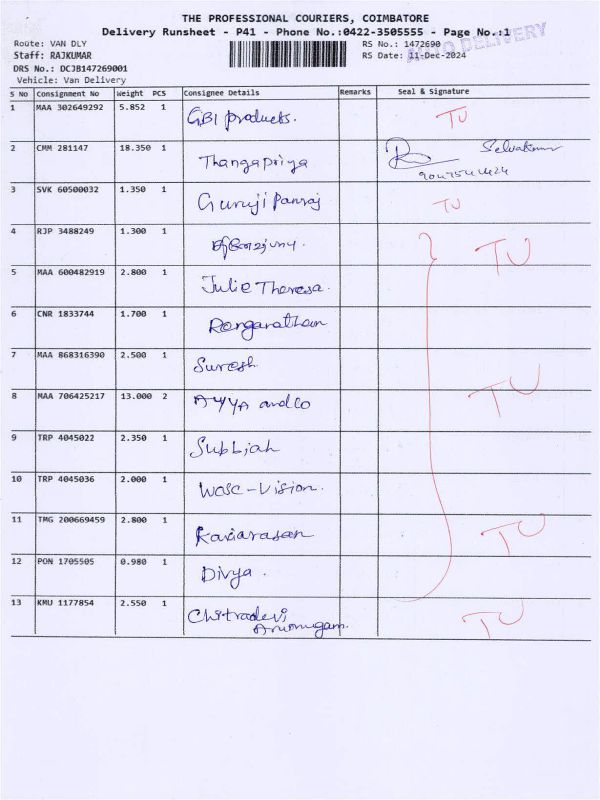 THE PROFESSIONAL COURIERS, COIMBATORE
Delivery Runsheet - P41 - Phone No.:0422-3505555 - Page No.:1
AUTO DELIVERY
Route: VAN DLY RS No.: 1472690
Staff: RAJKUMAR RS Date: 11-Dec-2024
DRS No.: DCJB147269001
Vehicle: Van Delivery
S No Consignment No Weight PCS Consignee Details Remarks Seal & Signature
1 MAA 302649292 5.852 1 GBI products. TU
2 CMM 281147 18.350 1 Thangapriya Selvakumar
3 SVK 60500032 1.350 1 Guruji Panraj TU
4 RJP 3488249 1.300 1 TU
5 MAA 600482919 2.800 1 Julie Theresa.
6 CNR 1833744 1.700 1 Rangaratham
7 MAA 868316390 2.500 1 Suresh
8 MAA 706425217 13.000 2 AYYA and co TU
9 TRP 4045022 2.350 1 Subbiah
10 TRP 4045036 2.000 1 Wosc-Vision.
11 TMG 200669459 2.800 1 Kaviarasan TU
12 PON 1705505 0.980 1 Divya.
13 KMU 1177854 2.550 1 Chitradevi TU
Arumugam.